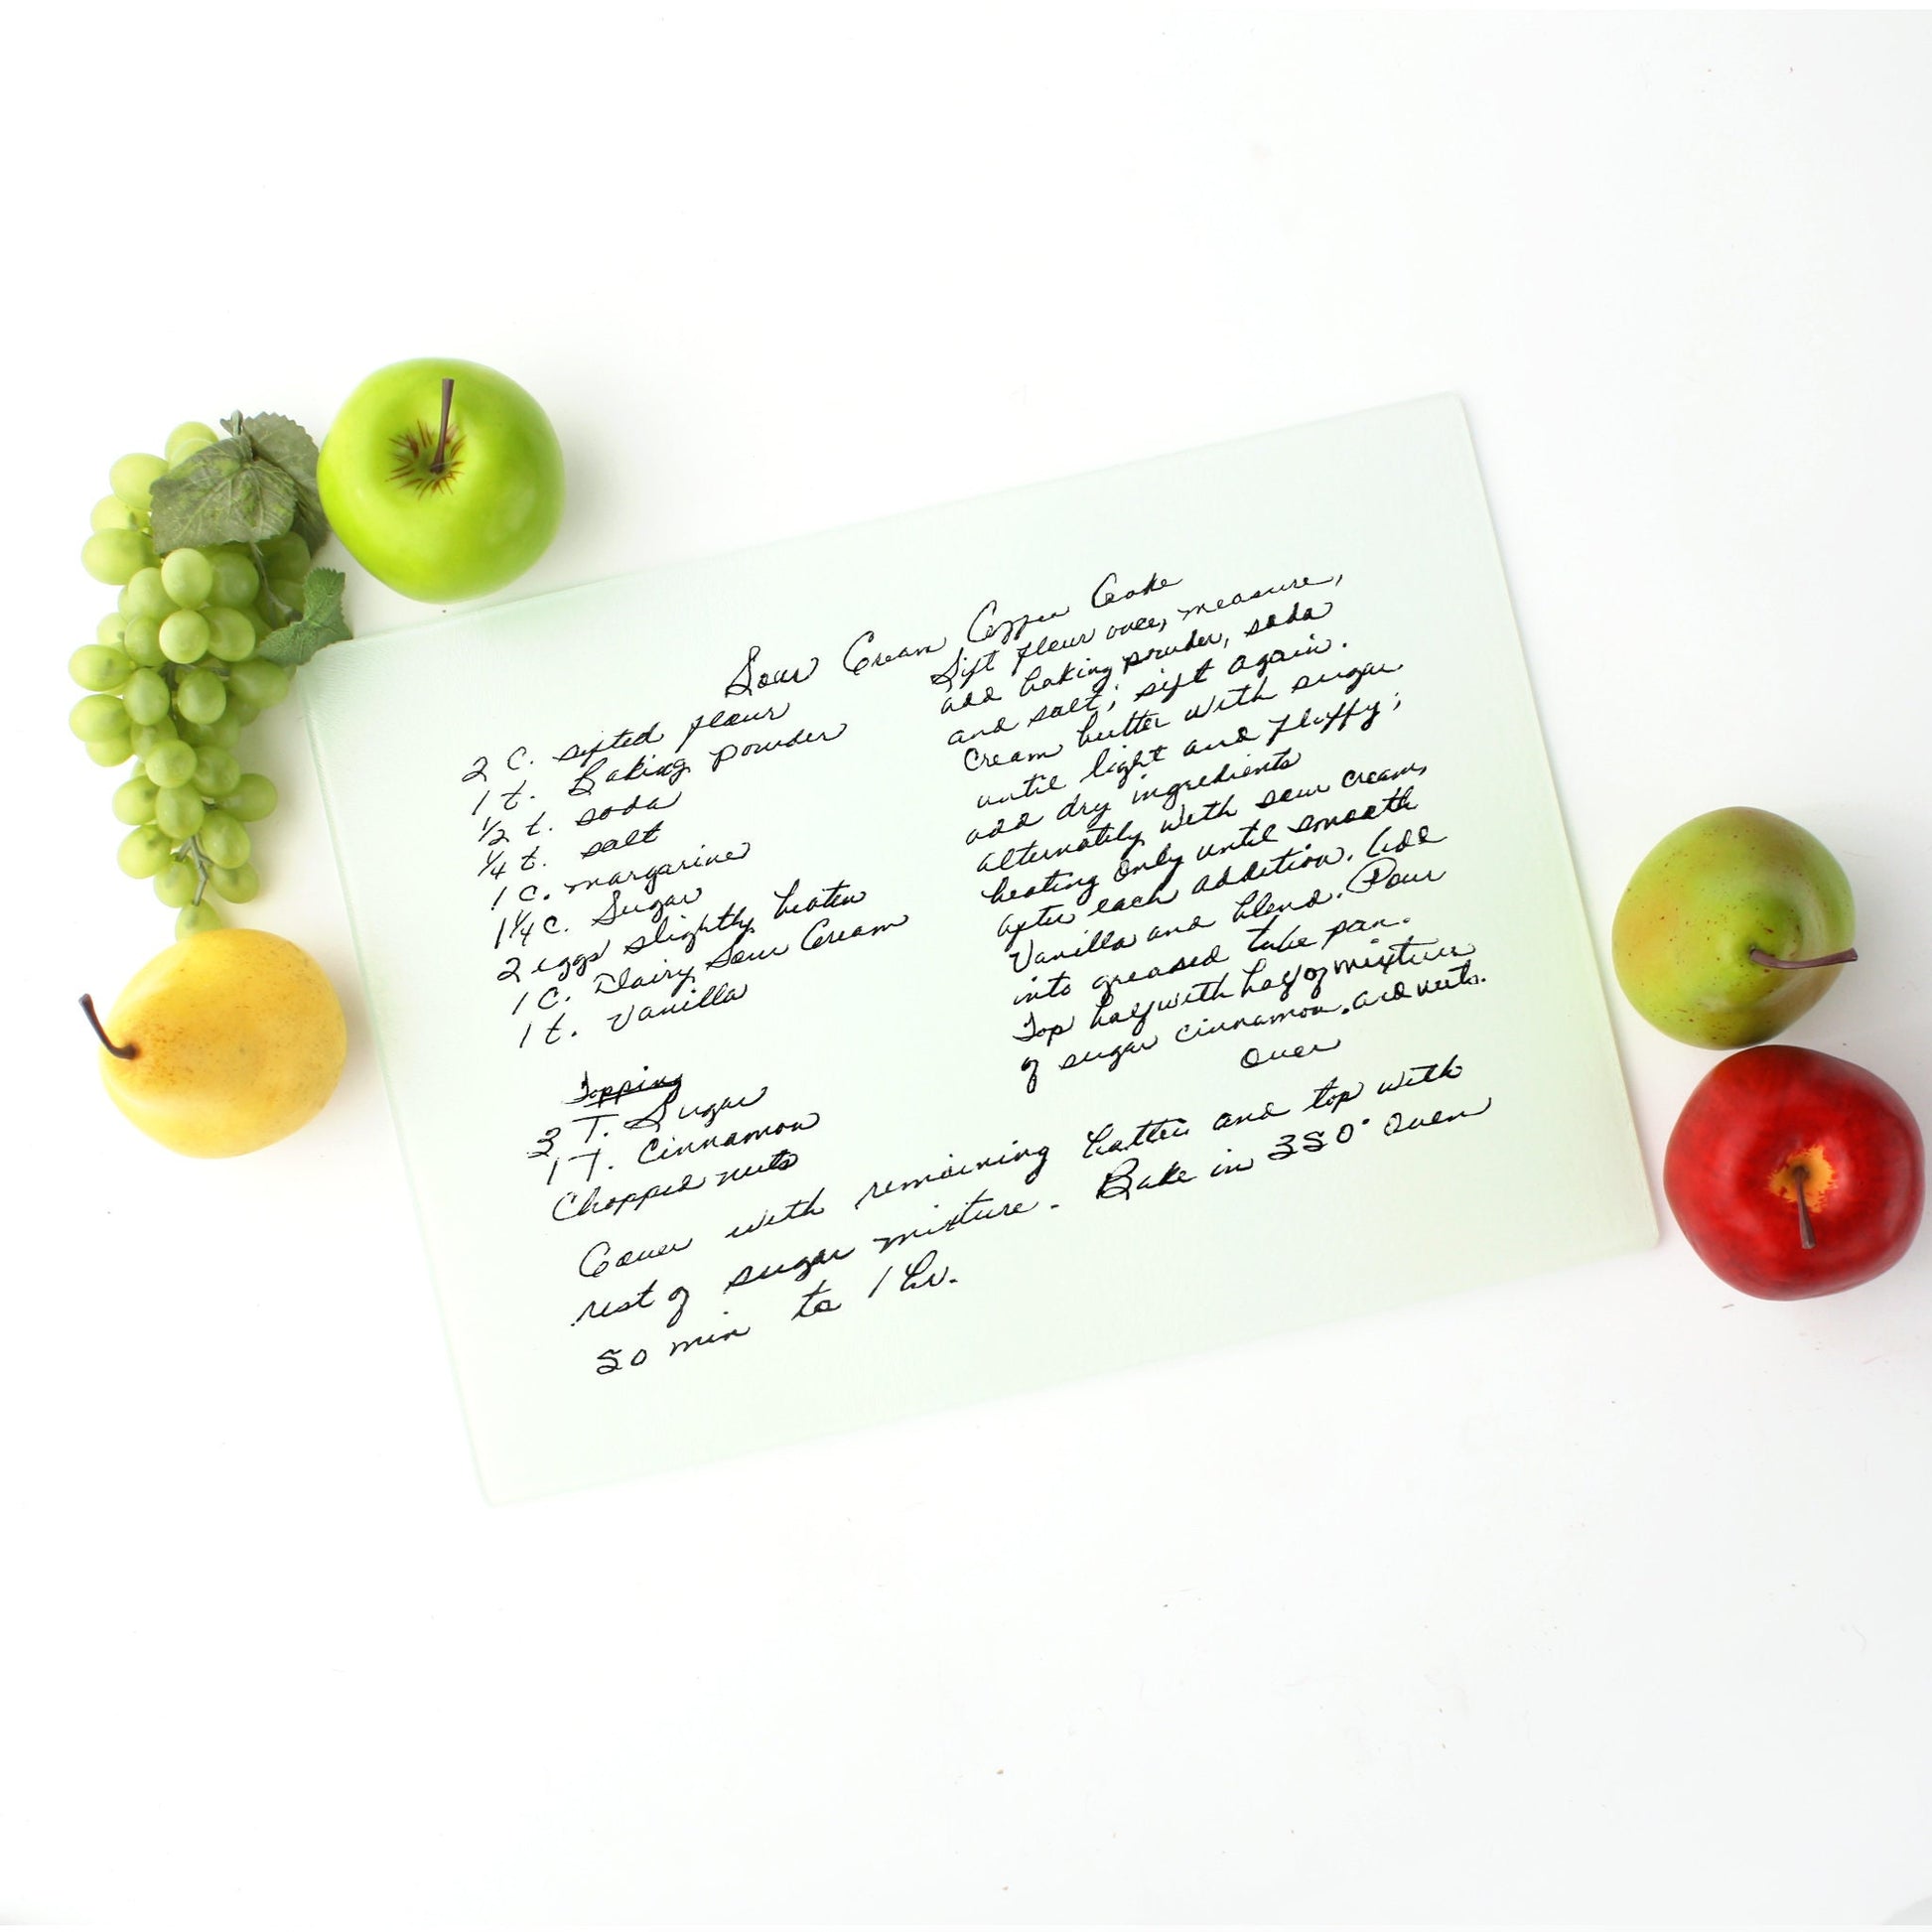 Sour Cream Coffee Cake
2 C. sifted flour
1 t. Baking powder
1/2 t. soda
1/4 t. salt
1 c. margarine
1 1/4 c. Sugar
2 eggs slightly beaten
1 C. Dairy Sour Cream
1 t. Vanilla
Topping
3 T. Sugar
1 T. Cinnamon
Chopped nuts
Sift flour once, measure,
add baking powder, soda
and salt; sift again.
Cream butter with sugar
until light and fluffy;
add dry ingredients
alternately with sour cream,
beating only until smooth
after each addition. Add
Vanilla and blend. Pour
into greased tube pan.
Top half with half of mixture
of sugar cinnamon, and nuts.
Over
Cover with remaining batter and top with
rest of sugar mixture. Bake in 350° Oven
50 min to 1 hr.